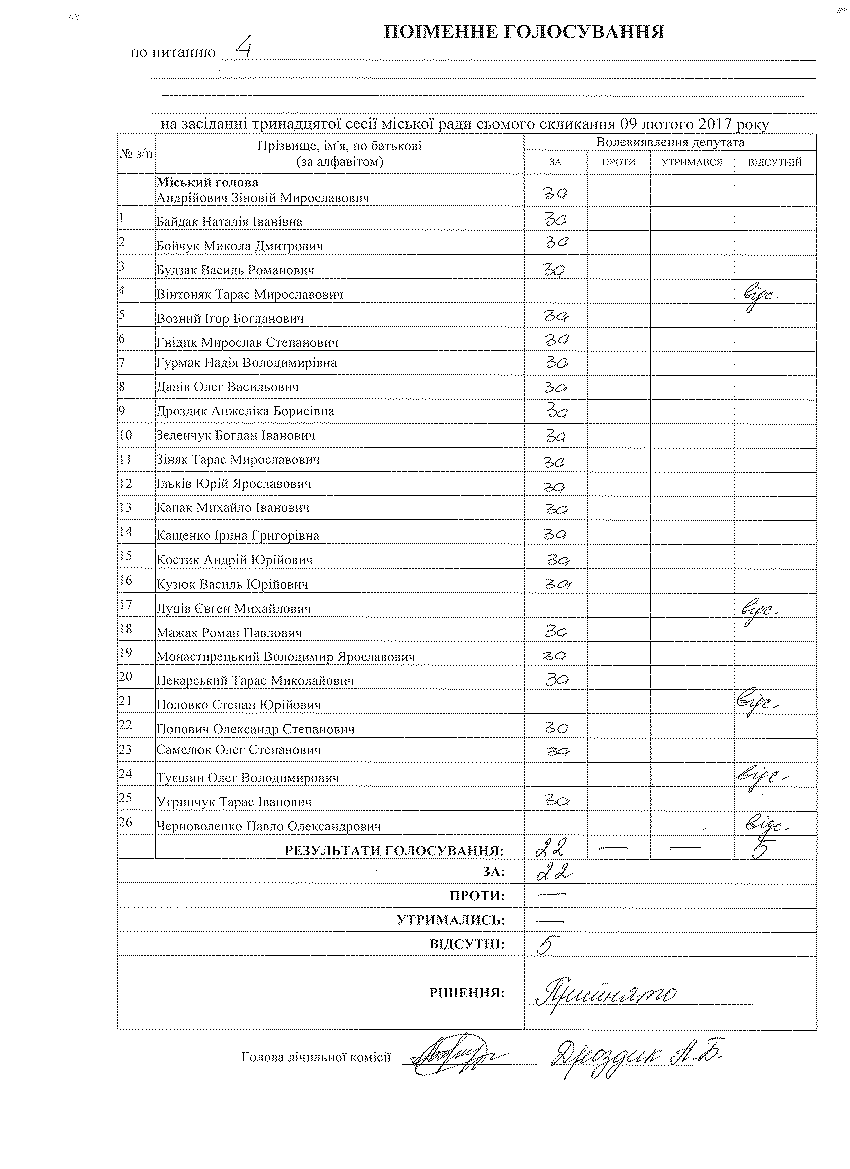 ПОІМЕННЕ ГОЛОСУВАННЯ
по питанню 4
на засіданні тринадцятої сесії міської ради сьомого скликання 09 лютого 2017 року
№ з/п Прізвище, ім'я, по батькові (за алфавітом) Волевиявлення депутата
ЗА ПРОТИ УТРИМАВСЯ ВІДСУТНІЙ
Міський голова
Андрійович Зіновій Мирославович за
1 Байдак Наталія Іванівна за
2 Бойчук Микола Дмитрович за
3 Будзак Василь Романович за
4 Вінтоняк Тарас Мирославович відс.
5 Возний Ігор Богданович за
6 Гнідик Мирослав Степанович за
7 Гурмак Надія Володимирівна за
8 Данів Олег Васильович за
9 Дроздик Анжеліка Борисівна за
10 Зеленчук Богдан Іванович за
11 Зіняк Тарас Мирославович за
12 Ільків Юрій Ярославович за
13 Капак Михайло Іванович за
14 Кащенко Ірина Григорівна за
15 Костик Андрій Юрійович за
16 Кузюк Василь Юрійович за
17 Луців Євген Михайлович відс.
18 Мажак Роман Павлович за
19 Монастирецький Володимир Ярославович за
20 Пекарський Тарас Миколайович за
21 Половко Степан Юрійович відс.
22 Попович Олександр Степанович за
23 Самелюк Олег Степанович за
24 Тушин Олег Володимирович відс.
25 Угринчук Тарас Іванович за
26 Черноволенко Павло Олександрович відс.
РЕЗУЛЬТАТИ ГОЛОСУВАННЯ: 22 — — 5
ЗА: 22
ПРОТИ: —
УТРИМАЛИСЬ: —
ВІДСУТНІ: 5
РІШЕННЯ: Прийнято
Голова лічильної комісії Дроздик А.Б.